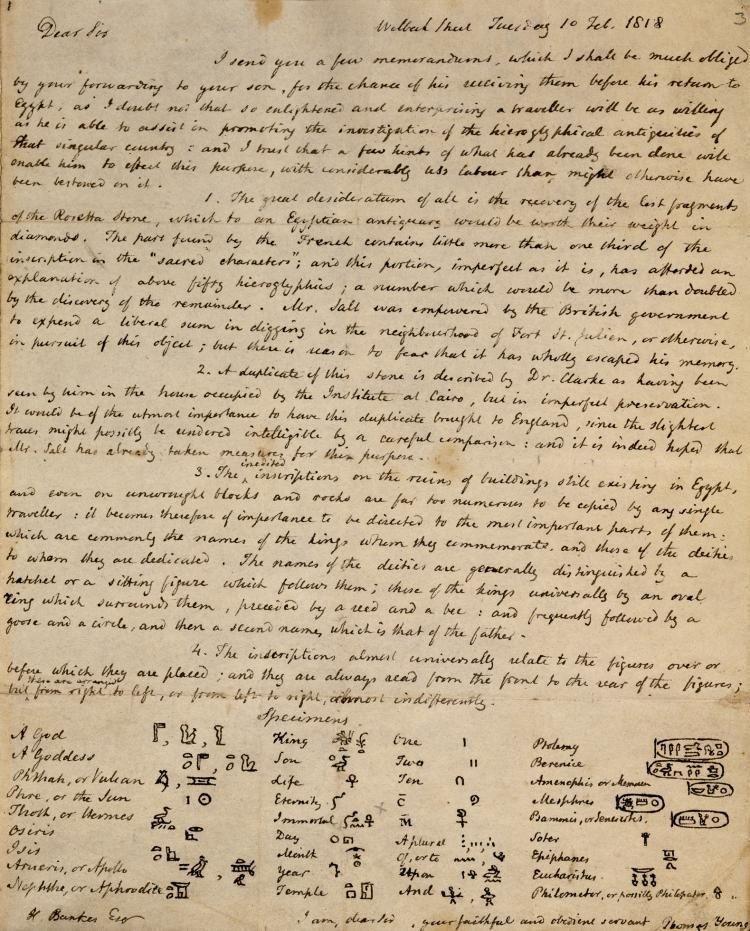 3
Welbeck Street Tuesday 10 Feb. 1818
Dear Sir
I send you a few memorandums, which I shall be much obliged
by your forwarding to your son, for the chance of his receiving them before his return to
Egypt, as I doubt not that so enlightened and enterprising a traveller will be as willing
as he is able to assist in promoting the investigation of the hieroglyphical antiquities of
that singular country: and I trust that a few hints of what has already been done will
enable him to effect this purpose, with considerably less labour than might otherwise have
been bestowed on it.
1. The great desideratum of all is the recovery of the lost fragments
of the Rosetta Stone, which to an Egyptian antiquary would be worth their weight in
diamonds. The part found by the French contains little more than one third of the
inscription in the "sacred characters"; and this portion, imperfect as it is, has afforded an
explanation of above fifty hieroglyphics; a number which would be more than doubled
by the discovery of the remainder. Mr. Salt was empowered by the British government
to expend a liberal sum in digging in the neighbourhood of Fort St. Julien, or otherwise,
in pursuit of this object; but there is reason to fear that it has wholly escaped his memory.
2. A duplicate of this stone is described by Dr. Clarke as having been
seen by him in the house occupied by the Institute at Cairo, but in imperfect preservation.
It would be of the utmost importance to have this duplicate brought to England, since the slightest
traces might possibly be rendered intelligible by a careful comparison: and it is indeed hoped that
Mr. Salt has already taken measures for this purpose.
3. The inedited inscriptions on the ruins of buildings still existing in Egypt,
and even on unwrought blocks and rocks are far too numerous to be copied by any single
traveller: it becomes therefore of importance to be directed to the most important parts of them:
which are commonly the names of the kings whom they commemorate, and those of the deities
to whom they are dedicated. The names of the deities are generally distinguished by a
hatchet or a sitting figure which follows them; those of the kings universally by an oval
ring which surrounds them, preceded by a reed and a bee: and frequently followed by a
goose and a circle, and then a second name, which is that of the father.
4. The inscriptions almost universally relate to the figures over or
before which they are placed; and they are always read from the front to the rear of the figures;
but these are arranged from right to left, or from left to right, almost indifferently.
Specimens
A God King One Ptolemy
A Goddess Son Two Berenice
Phthah, or Vulcan Life Ten Amenophis or Memnon
Phre, or the Sun Eternity C. Mesphres
Thoth, or Hermes Immortal M
Osiris Day A plural Soter
Isis Month Of, or to Epiphanes
Arueris, or Apollo Year Upon Eucharistus
Nephthe, or Aphrodite Temple And Philometor, or possibly Philopator
H Bankes Esq I am, dear Sir, your faithful and obedient servant Thomas Young